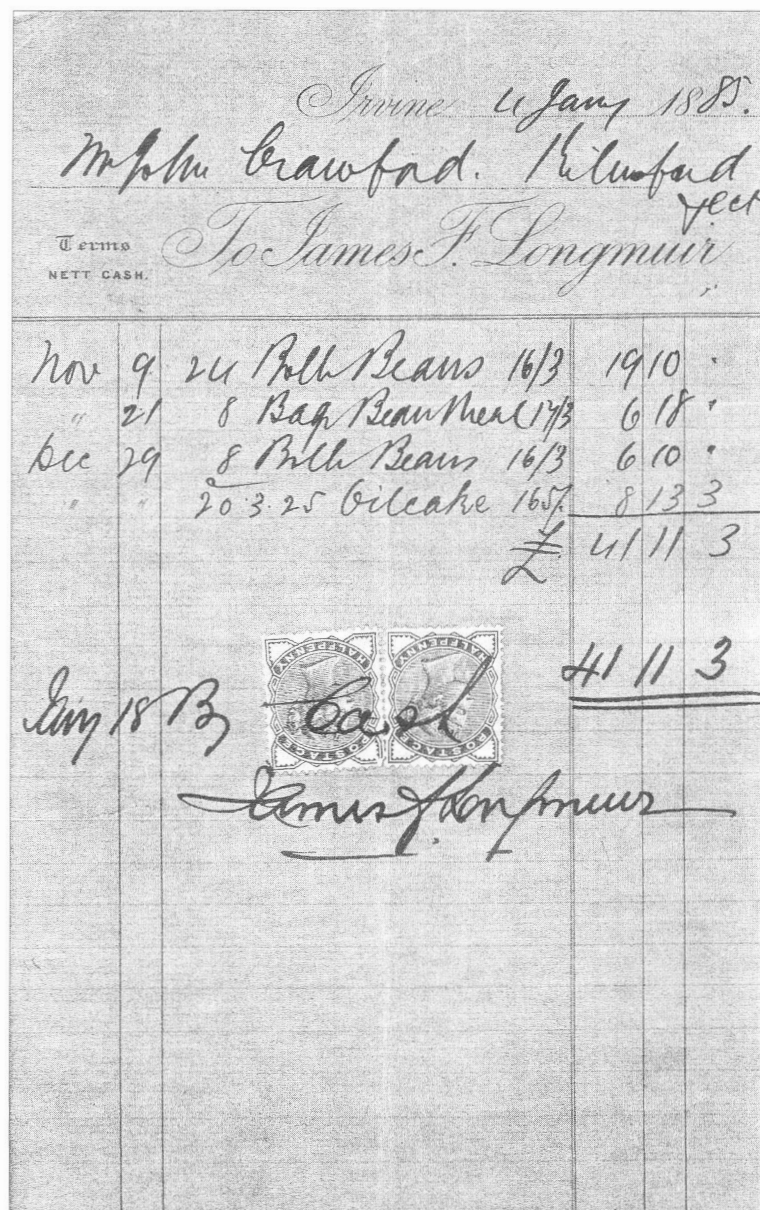 Irvine 4 Jany 1885.
Mr John Crawford. Kilnford
Terms
NETT CASH.
To James F. Longmuir
Nov 9 24 Bolls Beans 16/3 19 10 "
" 21 8 Bags Bean Meal 17/3 6 18 "
Dec 29 8 Bolls Beans 16/3 6 10 "
" " 20.3.25 Oilcake 165/ 8 13 3
£ 41 11 3
HALFPENNY HALFPENNY
41 11 3
Jany 18 By Cash
POSTAGE POSTAGE
James F. Longmuir